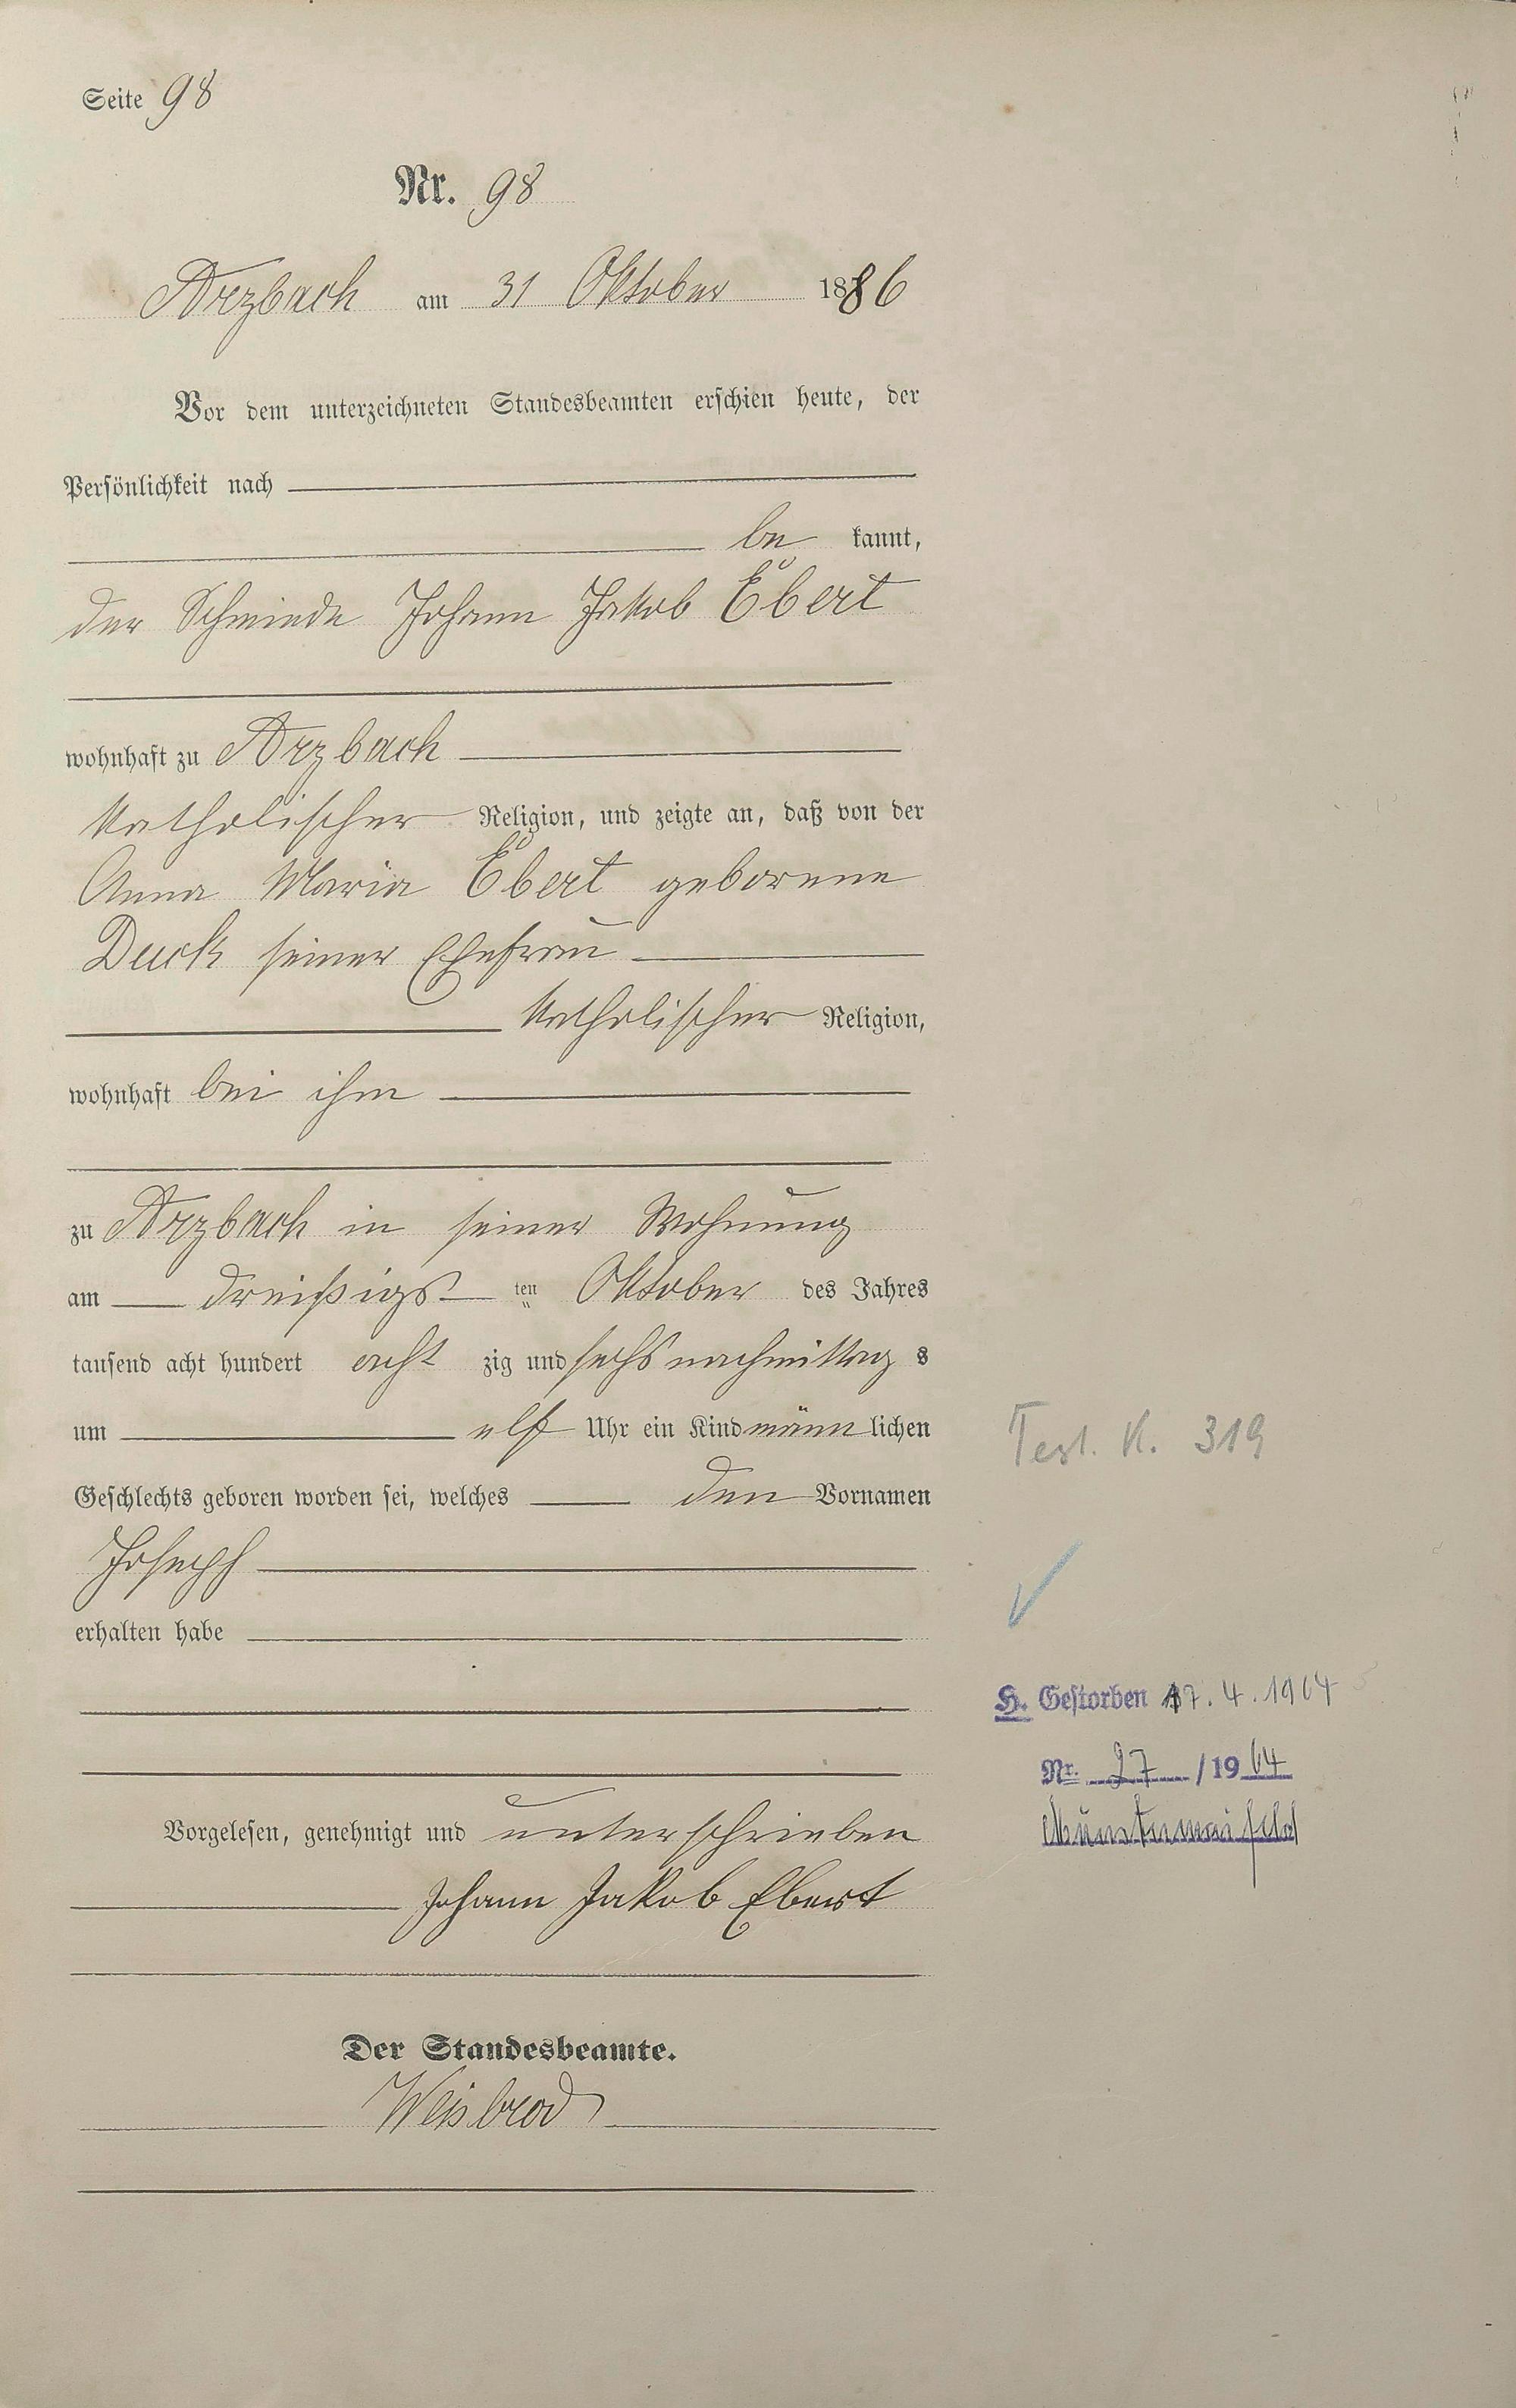 Seite 98
Nr. 98
Arzbach am 31 Oktober 1886
Vor dem unterzeichneten Standesbeamten erschien heute, der
Persönlichkeit nach
be kannt,
der Schmiede Johann Jakob Ebert
wohnhaft zu Arzbach
katholischer Religion, und zeigte an, daß von der
Anna Maria Ebert geborene
Duck seiner Ehefrau
katholischer Religion,
wohnhaft bei ihm
zu Arzbach in seiner Wohnung
am dreißigs ten Oktober des Jahres
tausend acht hundert acht zig und sechs nachmittag s
um elf Uhr ein Kind männ lichen
Geschlechts geboren worden sei, welches den Vornamen
Joseph
erhalten habe
Vorgelesen, genehmigt und unterschrieben
Johann Jakob Ebert
Der Standesbeamte.
Weisbrod
Test. K. 319
H. Gestorben 17.4.1964
Nr. 27 /1964
Münstermaifeld